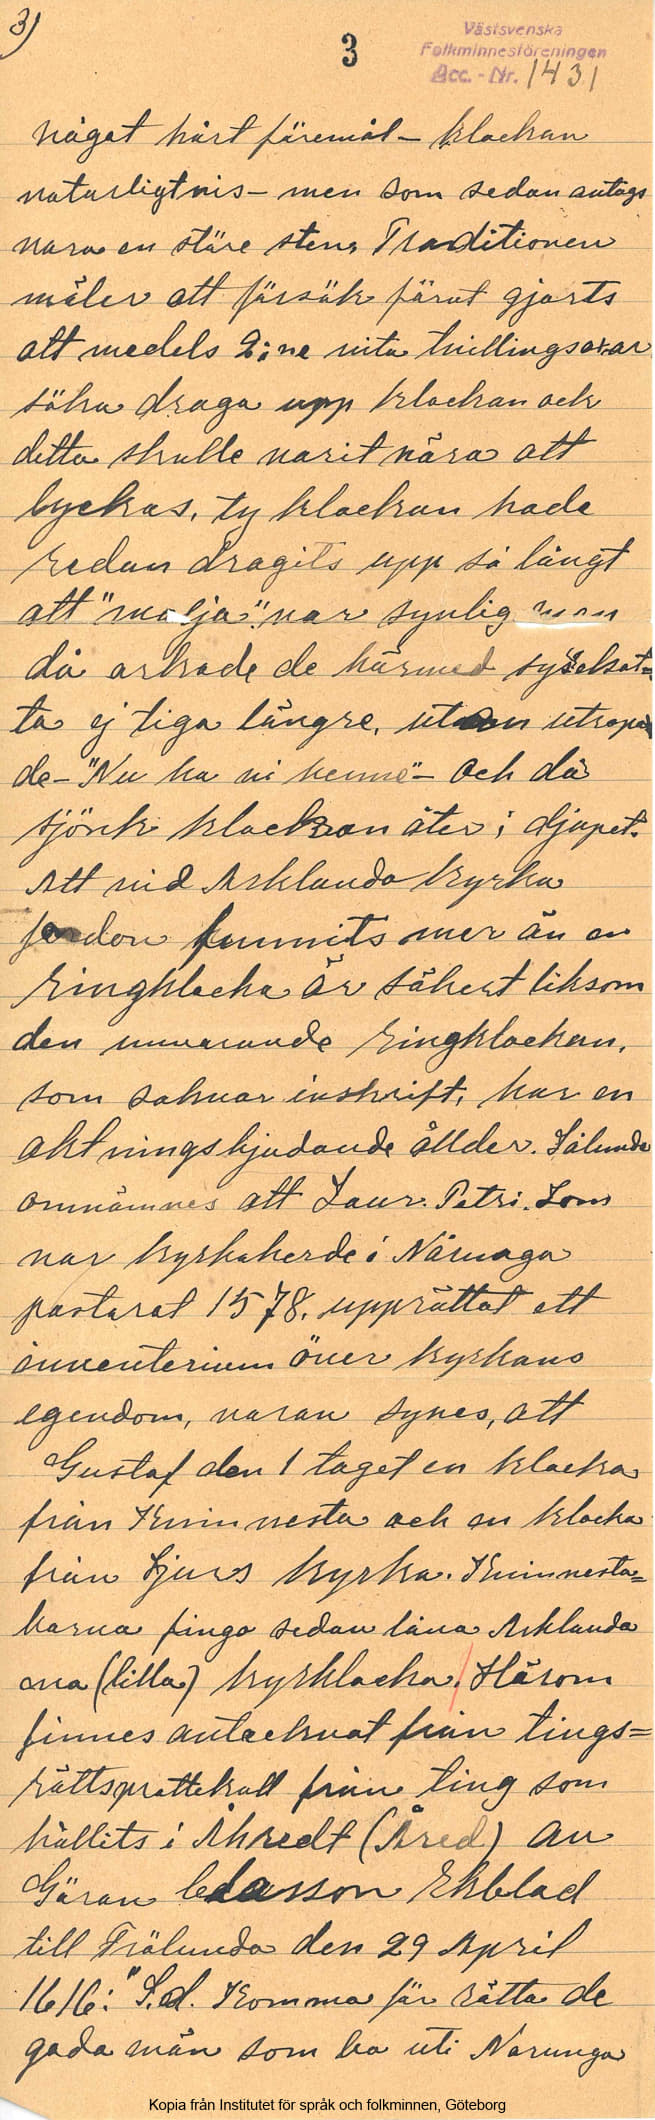 3)
3
Västsvenska
Folkminnesföreningen
Acc.-Nr. 1431
något hårt föremål – klockan
naturligtvis – men som sedan antogs
vara en störe sten. Traditionen
mäler att försök förut gjorts
att medels 2:ne vita tvillingsoxar
söka draga upp klockan ock
detta skulle varit nära att
lyckas, ty klockan hade
redan dragits upp så långt
att "malja" var synlig men
då orkade de härmed sysselsat-
ta ej tiga längre, utan utropa
de – "Nu ha vi henne" – Och då
sjönk klockan åter i djupet.
Att vid Asklanda kyrka
fordon funnits mer än en
ringklocka är säkert liksom
den nuvarande ringklockan,
som saknar inskrift, har en
aktningsbjudande ållder. Sålunda
omnämnes att Laur. Petri. Som
var kyrkoherde i Nårunga
pastorat 1578. upprättat ett
inventerium över kyrkans
egendom, varav synes, att
Gustaf den 1 taget en klocka
från Kvinnesta och en klocka
från Ljurs kyrka. Kvinnesta=
barna fingo sedan låna Asklanda
ena (lilla) kyrklocka. Härom
finnes antecknat från tings=
rättsprottekoll från ting som
hållits i Åhredt (Åred) av
Göran Claesson Ekblad
till Frölunda den 29 April
1616: "S.d. Komma för rätta de
goda män som bo uti Narunga
Kopia från Institutet för språk och folkminnen, Göteborg